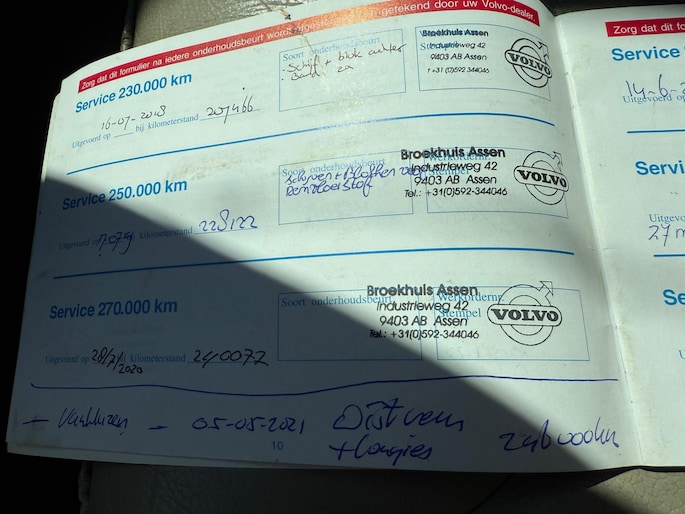 Zorg dat dit formulier na iedere onderhoudsbeurt wordt getekend door uw Volvo-dealer.
Service 230.000 km
Soort onderhoudsbeurt
Schijf + blok achter
Uitgevoerd op 16-07-2018 bij kilometerstand 207466
Broekhuis Assen
Industrieweg 42
9403 AB Assen
+31 (0)592-344046
VOLVO
Service 250.000 km
Soort onderhoudsbeurt
Schijven + Blokken
Remvloeistof
Uitgevoerd op kilometerstand 228122
Werkordernr.
Stempel
Broekhuis Assen
Industrieweg 42
9403 AB Assen
Tel.: +31(0)592-344046
VOLVO
Service 270.000 km
Soort onderhoudsbeurt
Uitgevoerd op 28/7/2020 bij kilometerstand 240077
Werkordernr.
Stempel
Broekhuis Assen
Industrieweg 42
9403 AB Assen
Tel.: +31(0)592-344046
VOLVO
05-05-2021 Distr riem
246000km
10
Zorg dat dit fo
Service
14-6-2
Uitgevoerd op
Servi
Uitgevo
27 m
Se